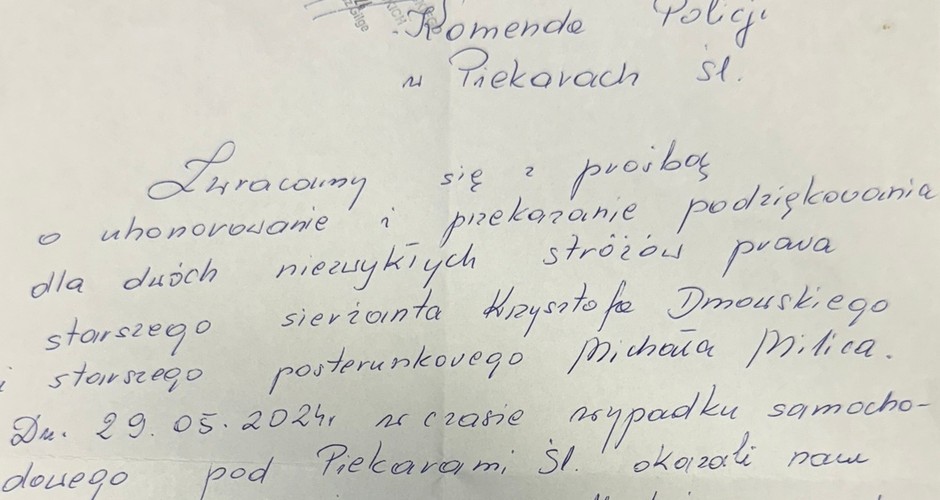 Komenda Policji
w Piekarach Śl.
Zwracamy się z prośbą
o uhonorowanie i przekazanie podziękowania
dla dwóch niezwykłych stróżów prawa
starszego sierżanta Krzysztofa Dmowskiego
i starszego posterunkowego Michała Milica.
Dn. 29.05.2024r w czasie wypadku samocho-
dowego pod Piekarami Śl. okazali nam